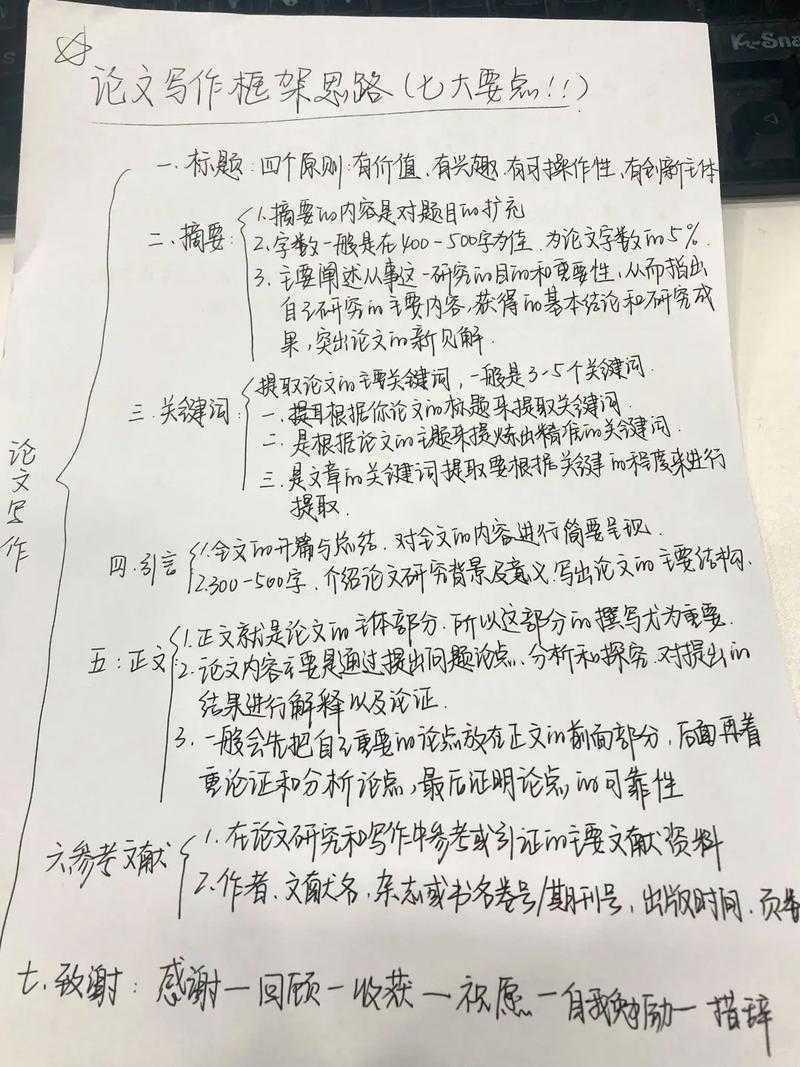 论文写作框架思路(七大要点!!)
论文写作
一.标题:四个原则:有价值、有兴趣、有可操作性、有创新主体
二.摘要:
1.摘要的内容是对题目的扩充
2.字数一般是在400-500字为佳,为论文字数的5%.
3.主要阐述从事这一研究的目的和重要性,从而指出
自己研究的主要内容,获得的基本结论和研究成
果,突出论文的新见解.
三.关键词:
提取论文的主要关键词,一般是3-5个关键词.
一.提取根据你论文的标题来提取关键词.
二.是根据论文的主题来提炼出精准的关键词.
三.是文章的关键词提取要根据关键的程度来进行
提取.
四.引言
1.全文的开篇与总结.对全文的内容进行简要呈现.
2.300-500字.介绍论文研究背景及意义.写出论文的主要结构.
五:正文
1.正文就是论文的主体部分.所以这部分的撰写尤为重要.
2.论文内容主要是通过提出问题论点、分析和探究.对提出的
结果进行解释以及论证.
3.一般会先把自己重要的论点放在正文的前面部分,后面再着
重论证和分析论点,最后证明论点的可靠性
六.参考文献
1.在论文研究和写作中参考或引证的主要文献资料
2.作者、文献名、杂志或书名卷号/期刊号,出版时间、页
七.致谢:感谢—回顾—收获—祝愿—自我勉励—措辞